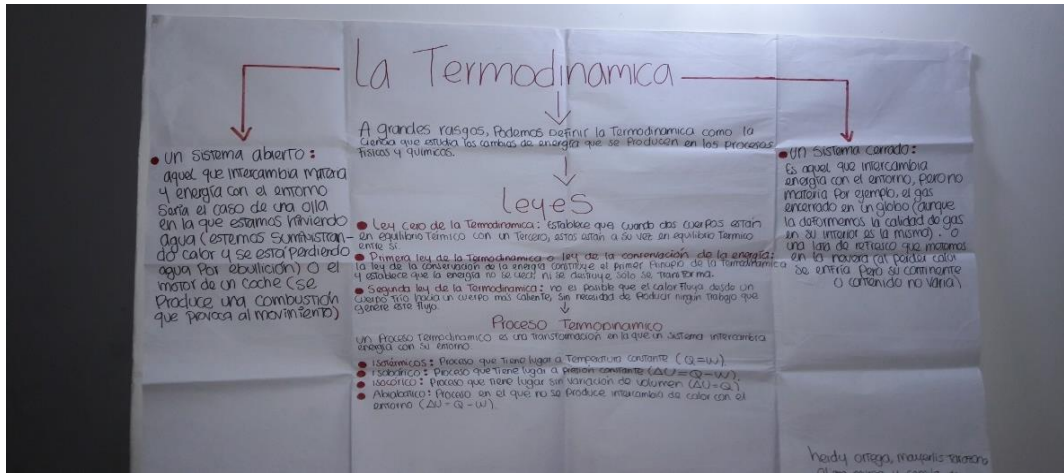 La Termodinamica
A grandes rasgos, Podemos Definir la Termodinamica como la
ciencia que estudia los cambios de energía que se Producen en los procesos
físicos y químicos.
• Un Sistema abierto:
aquel que intercambia materia
y energía con el entorno
Sería el caso de una olla
en la que estamos hirviendo
agua (estemos suministran-
do calor y se está perdiendo
agua por ebullición) O el
motor de un coche (se
Produce una combustión
que provoca al movimiento)
leyes
• Ley cero de la Termodinamica: Establece que cuando dos cuerpos están
en equilibrio Térmico con un Tercero, estos están a su vez en equilibrio Térmico
entre sí.
• Primera ley de la Termodinamica o ley de la conservación de la energía:
la ley de la conservación de la energía constituye el primer Principio de la Termodinamica
y establece que la energía no se crea, ni se destruye, Solo se Transforma.
• Segunda ley de la Termodinamica: no es posible que el calor Fluya desde un
cuerpo frío hacia un cuerpo mas caliente, Sin necesidad de Producir ningún Trabajo que
genere este Flujo.
Proceso Termodinamico
un Proceso Termodinamico es una Transformación en la que un Sistema intercambia
energía con su entorno.
• Isotérmicos: Proceso que Tiene lugar a Temperatura constante (Q=W)
• Isobárico: Proceso que Tiene lugar a presión constante (ΔU=Q-W)
• isocórico: Proceso que Tiene lugar sin variación de volumen (ΔU=Q)
• Proceso en el que no se produce intercambio de calor con el
entorno (ΔU-Q-W).
• Un Sistema cerrado:
Es aquel que intercambia
energía con el entorno, pero no
materia Por ejemplo, el gas
encerrado en un globo (aunque
la deformemos la calidad de gas
en su interior es la mismo). O
una lata de refresco que metemos
en la nevera (al perder calor
se enfría pero su continente
o contenido no varia)
heidy ortega,